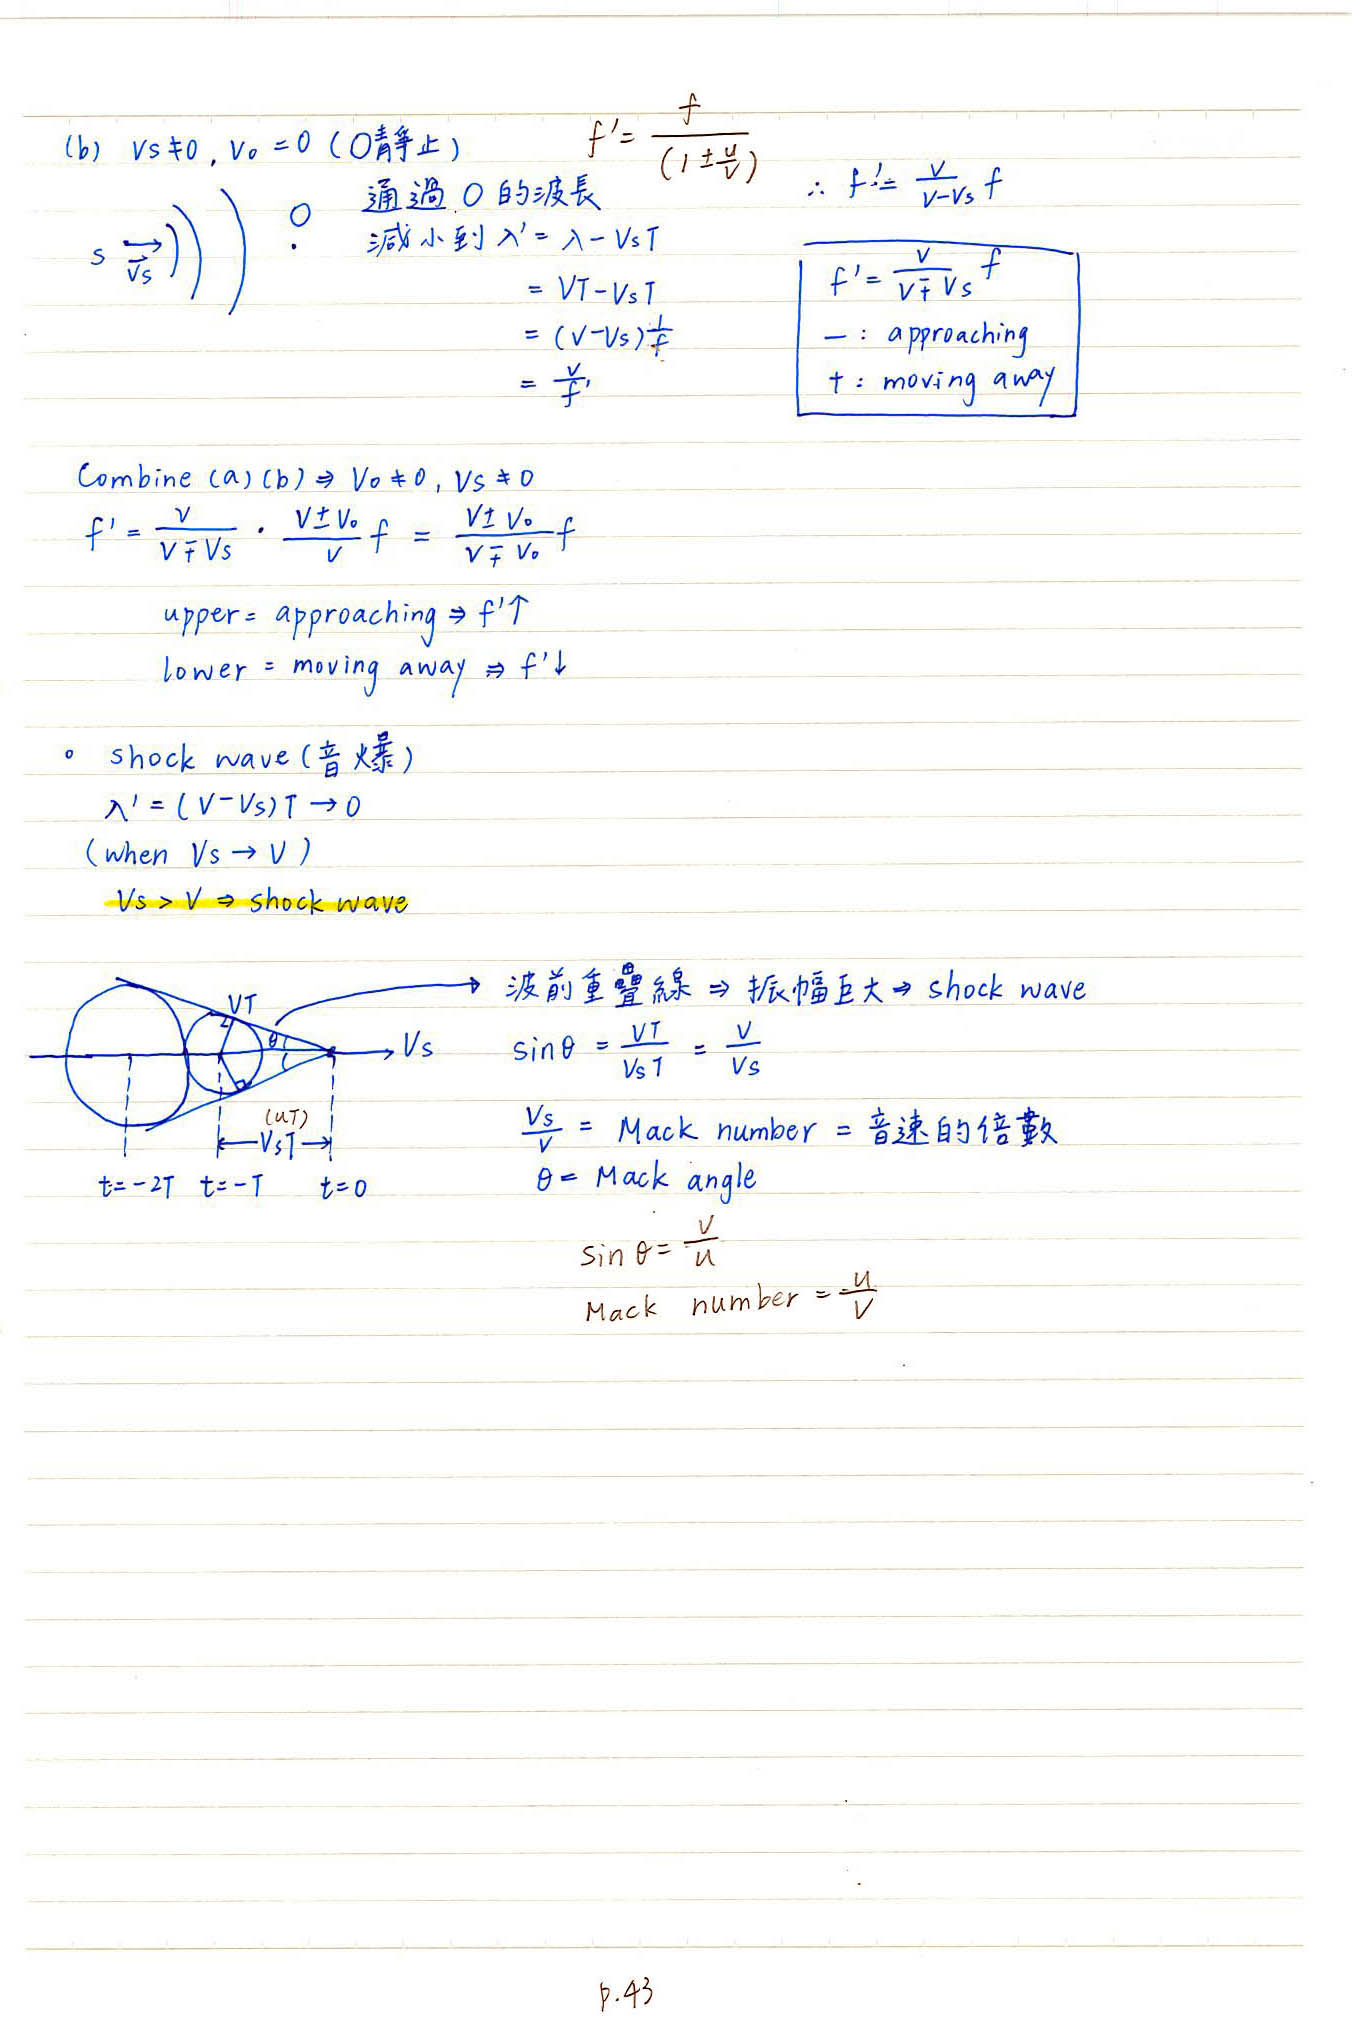 (b) Vs≠0, Vo=0 (O靜止)
f' = f/(1±u/v)
S Vs O
通過 O 的波長
減小到 λ' = λ - VsT
= VT - VsT
= (V-Vs) 1/f
= V/f'
∴ f' = V/(V-Vs) f
f' = V/(V∓Vs) f
— : approaching
+ : moving away
Combine (a)(b) ⇒ Vo≠0, Vs≠0
f' = V/(V∓Vs) · (V±Vo)/V f = (V±Vo)/(V∓Vo) f
upper = approaching ⇒ f'↑
lower = moving away ⇒ f'↓
° shock wave (音爆)
λ' = (V-Vs)T → 0
(when Vs → V)
Vs > V ⇒ shock wave
波前重疊線 ⇒ 振幅巨大 ⇒ shock wave
VT
θ
Vs
sinθ = VT/VsT = V/Vs
(uT)
VsT
Vs/V = Mack number = 音速的倍數
t=-2T t=-T t=0
θ = Mack angle
sinθ = V/u
Mack number = u/V
p.43